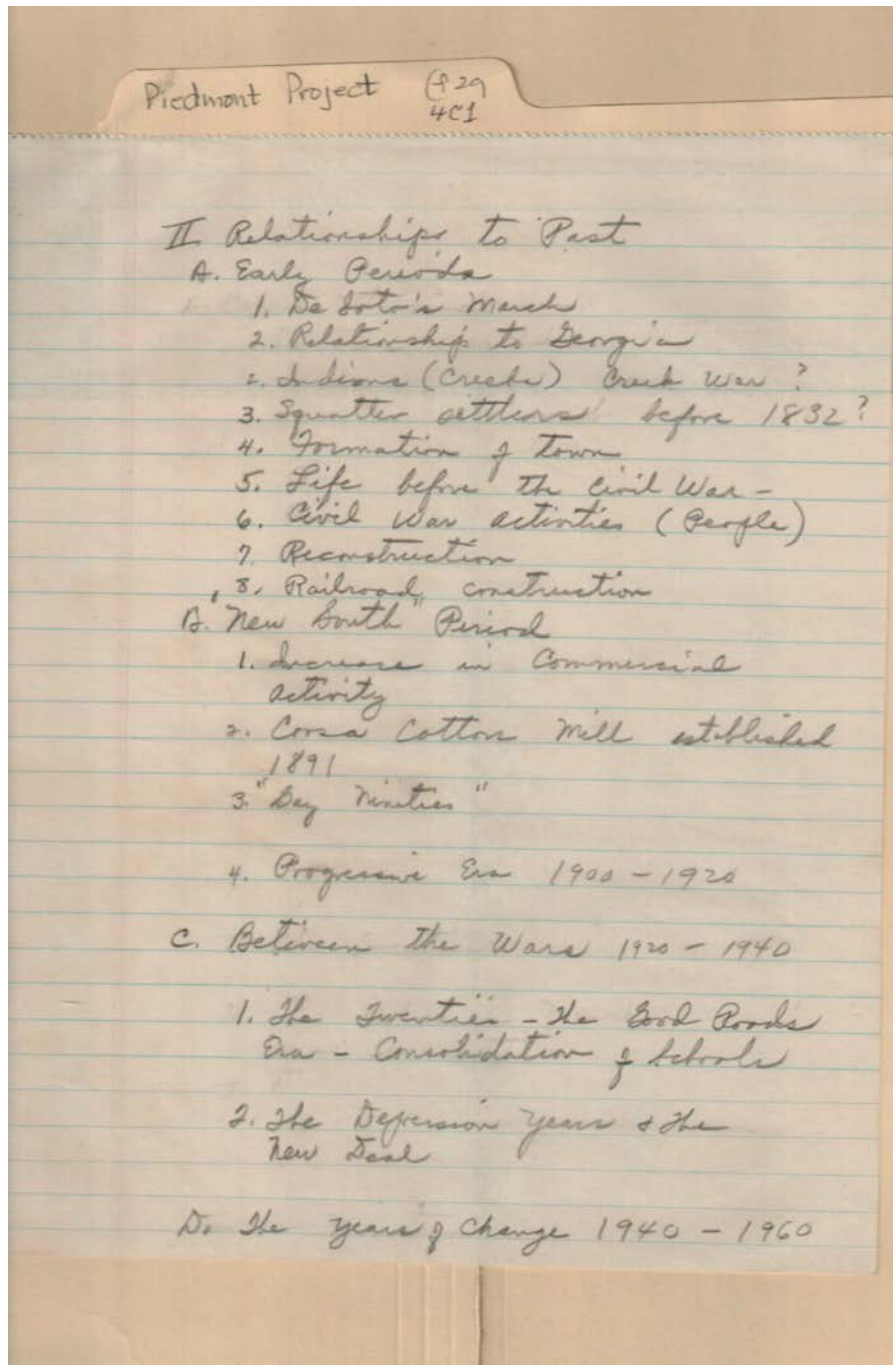 Piedmont Project (f 29
4C1
II Relationships to Past
A. Early Periods
1. De Soto's March
2. Relationship to Georgia
2. Indians (Creeks) Creek War ?
3. Squatter settlers before 1832 ?
4. Formation of Town
5. Life before the Civil War -
6. Civil War activities (People)
7. Reconstruction
8. Railroad construction
B. "New South" Period
1. Increase in Commercial
activity
2. Coosa Cotton Mill established
1891
3. "Gay Nineties"
4. Progressive Era 1900 - 1920
C. Between the Wars 1920 - 1940
1. The Twenties - the Good Roads
Era - Consolidation of Schools
2. The Depression years & the
New Deal
D. The years of Change 1940 - 1960